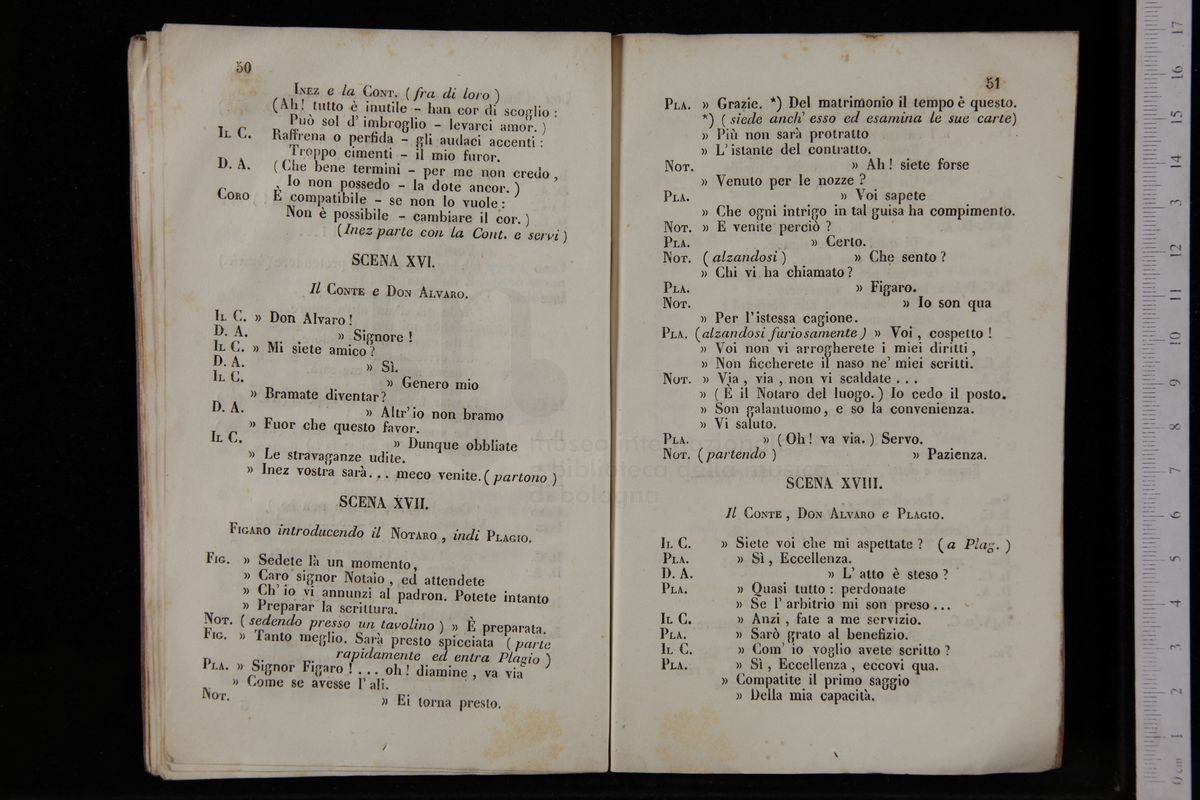 50
INEZ e la CONT. ( fra di loro )
(Ah! tutto è inutile - han cor di scoglio :
Può sol d' imbroglio - levarci amor. )
IL C. Raffrena o perfida - gli audaci accenti :
Troppo cimenti - il mio furor.
D. A. ( Che bene termini - per me non credo ,
Io non possedo - la dote ancor. )
CORO È compatibile - se non lo vuole :
Non è possibile - cambiare il cor. )
(Inez parte con la Cont. e servi )
SCENA XVI.
Il CONTE e DON ALVARO.
IL C. » Don Alvaro !
D. A. » Signore !
IL C. » Mi siete amico ?
D. A. » Sì.
IL C. » Genero mio
» Bramate diventar ?
D. A. » Altr' io non bramo
» Fuor che questo favor.
IL C. » Dunque obbliate
» Le stravaganze udite.
» Inez vostra sarà... meco venite. ( partono )
SCENA XVII.
FIGARO introducendo il NOTARO , indi PLAGIO.
FIG. » Sedete là un momento,
» Caro signor Notaio , ed attendete
» Ch' io vi annunzi al padron. Potete intanto
» Preparar la scrittura.
NOT. ( sedendo presso un tavolino ) » È preparata.
FIG. » Tanto meglio. Sarà presto spicciata ( parte
rapidamente ed entra Plagio )
PLA. » Signor Figaro ! ... oh ! diamine , va via
» Come se avesse l' ali.
NOT. » Ei torna presto.
51
PLA. » Grazie. *) Del matrimonio il tempo è questo.
*) ( siede anch' esso ed esamina le sue carte)
» Più non sarà protratto
» L' istante del contratto.
NOT. » Ah ! siete forse
» Venuto per le nozze ?
PLA. » Voi sapete
» Che ogni intrigo in tal guisa ha compimento.
NOT. » E venite perciò ?
PLA. » Certo.
NOT. ( alzandosi ) » Che sento ?
» Chi vi ha chiamato ?
PLA. » Figaro.
NOT. » Io son qua
» Per l' istessa cagione.
PLA. (alzandosi furiosamente ) » Voi , cospetto !
» Voi non vi arrogherete i miei diritti ,
» Non ficcherete il naso ne' miei scritti.
NOT. » Via , via , non vi scaldate . . .
» ( È il Notaro del luogo. ) Io cedo il posto.
» Son galantuomo, e so la convenienza.
» Vi saluto.
PLA. » ( Oh ! va via. ) Servo.
NOT. ( partendo ) » Pazienza.
SCENA XVIII.
Il CONTE , DON ALVARO e PLAGIO.
IL C. » Siete voi che mi aspettate ? ( a Plag. )
PLA. » Sì , Eccellenza.
D. A. » L' atto è steso ?
PLA. » Quasi tutto : perdonate
» Se l' arbitrio mi son preso ...
IL C. » Anzi , fate a me servizio.
PLA. » Sarò grato al benefizio.
IL C. » Com' io voglio avete scritto ?
PLA. » Sì , Eccellenza , eccovi qua.
» Compatite il primo saggio
» Della mia capacità.
museo internazionale
e biblioteca della musica
di bologna
0 cm 1 2 3 4 5 6 7 8 9 10 11 12 13 14 15 16 17